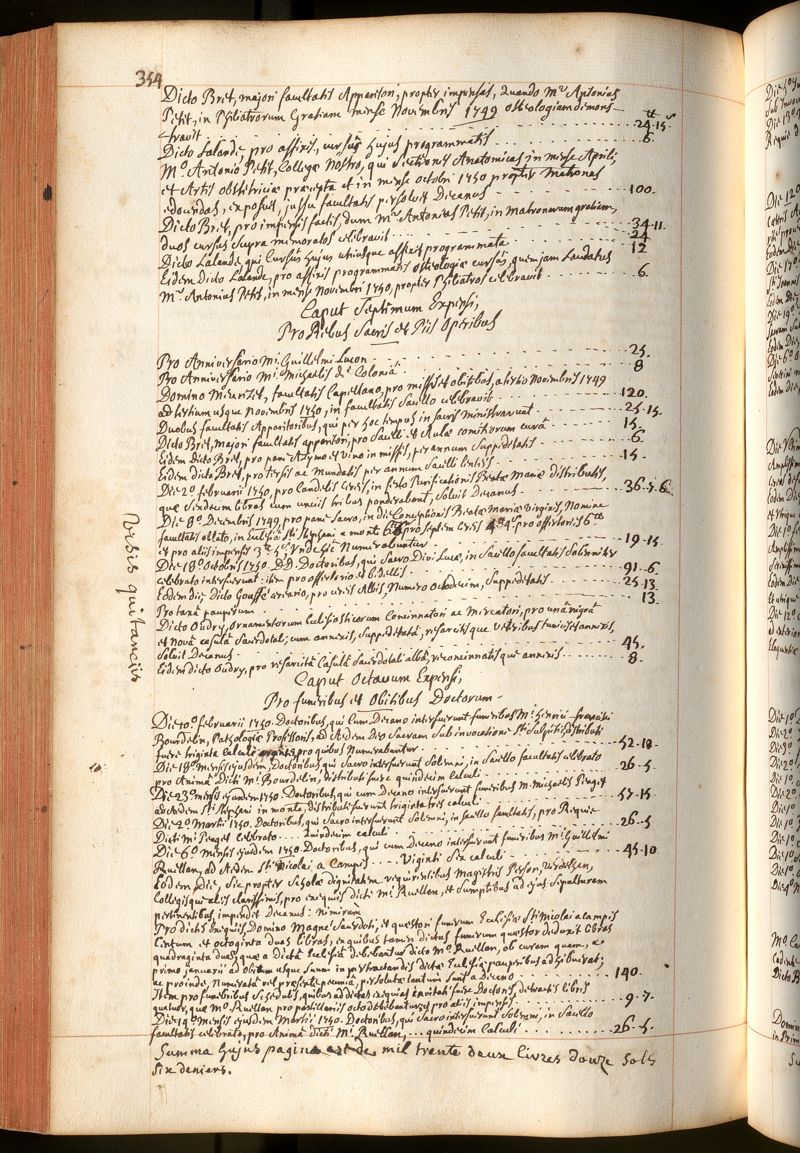 354
Dicto Bret, majori facultatis Apparitori, propter impensas, quando Mr Antonius
Petit, in Philiatrorum Gratiam mense Novembris 1749 osteologiam demons-
travit . . . 24-15
Dicto Lalande, pro affixis, cursus hujus programmatis . . . 6.
Mo. Antonio Petit, Collegæ Nostro, qui Sectiones Anatomicas in mense Aprili,
et Artis obstetriciæ præcepta et in mense octobri 1750 propter Matronas
edocendas, exposuit, jussu facultatis persolvit Decanus . . . 100.
Dicto Bret, pro impensis factis, dum Mr Antonius Petit, in matronarum gratiam,
duos cursus supra memoratos celebravit . . . 34-11.
Dicto Lalande, qui Cursus hujus utriusque affixit programmata . . . 24
Eidem Dicto Lalande, pro affixis programmatis osteologiæ cursus, quem jam laudatus . . . 12
Mr. Antonius Petit, in mense Novembri 1750, propter Philiatros celebravit . . . 6.
Caput Septimum Expensi,
Pro Rebus Sacris et Piis Operibus
Pro Anniversario Mi. Guillelmi Lucon . . . 25.
Pro Anniversario Mi. Michaelis de Coloniâ . . . 8
Domino facultatis Capellano, pro missis et obitibus, a tertio Novembris 1749
ad tertium usque Novembris 1750, in facultatis Sacello celebravit . . . 120.
Duobus facultatis Apparitoribus, qui per hoc tempus in sacris ministrarunt . . . 25-15.
Dicto Bret, majori facultatis apparitori, pro Sacelli et Aulæ comitiorum curâ . . . 15.
Eidem Dicto Bret, pro pane Azymo et vino in missis, per annum suppeditatis . . . 6.
Eidem dicto Bret, pro tersis ac mundatis per annum Sacelli linteis . . . 15.
Die 2o februarii 1750, pro Candelis Cereis, in festo Purificationis Beatæ Mariæ distributis,
quæ Sexdecim libras cum unciis tribus ponderabant, solvit Decanus . . . 36-5-6
Die 8o. Decembris 1749, pro pane Sacro, in die Conceptionis Beatæ Mariæ Virginis, Nomine
facultatis oblato, in Ecclesiâ Sti Stephani a monte pro septem cereis pro offertoriis
et pro aliis impensis Numerabuntur . . . 19-15.
Die 18o. Octobris 1750. D.D. Doctoribus, qui Sacro Divi Lucæ, in Sacello facultatis Solenniter
celebrato interfuerunt: item pro offertorio et bidellis . . . 91-6.
Eodem die, Dicto Gouffé cerario, pro cereis Albis, Numero octodecim, suppeditatis . . . 25-13.
Pro taxâ pauperum . . . 13.
Dicto Oudry, ornamentorum Ecclesiasticorum Concinnatori ac Mercatori, pro unâ nigrâ
et novâ casulâ Sacerdotali, cum annexis, suppeditatâ, refarcitisque veteribus tunicis et annexis,
solvit Decanus . . . 45.
Eidem dicto Oudry, pro refarcitâ Casulâ Sacerdotali albâ, reconcinnatisque annexis . . . 8.
Visis quitanciis
Caput Octavum Expensi,
Pro funeribus et Obitibus Doctorum.
Die 10o. februarii 1750. Doctoribus, qui Cum Decano interfuerunt funeribus Mi. Henrici
Bourdelin, Pathologiæ Professoris, ad Aedem Deo Sacram sub invocatione Sti Sulpitii, distributi
fuere triginta calculi pro quibus Numerabantur . . . 52-10.
Die 18o. Mensis ejusdem, Doctoribus, qui Sacro interfuerunt solenni, in Sacello facultatis celebrato
pro Animâ dicti Mi Bourdelin, distributi fuere quindecim calculi . . . 26-5.
Die 23o. mensis ejusdem 1750. Doctoribus, qui cum Decano interfuerunt funeribus Mi. Michaelis Peaget
ad Aedem Sti Stephani in monte, distributi fuerunt triginta tres calculi . . . 57-15
Die 2o. Martii 1750. Doctoribus, qui Sacro interfuerunt Solenni, in Sacello facultatis, pro Requie
Dicti Mi Peaget celebrato . . . Quindecim calculi . . . 26-5
Die 6o. Mensis ejusdem 1750. Doctoribus, qui cum Decano interfuerunt funeribus Mi. Guillelmi
Ruellan, ad Aedem Sti Nicolai a Campis . . . Viginti sex calculi . . . 45-10
Eodem Die, sic propter Scholæ dignitatem requirentibus Magistris Person, Verdelhan,
Collegis que aliis clarissimis, pro exequiis dicti Mi Ruellan, et sumptibus ad ejus Sepulturam
pertinentibus impendit Decanus: Nimirum
Pro dictis Exequiis, Domino Sacerdoti, et quæstori funerum Ecclesiæ Sti Nicolai a Campis
Centum et octoginta duas libras, ex quibus tamen dictus funerum quæstor deduxit libras
quadraginta duas, quæ a dictâ Ecclesiâ debebantur dicto Mo. Ruellan, ob curam quam, a
primo januarii ad obitum usque suum in pertractandis dictæ Ecclesiæ pauperibus adhibuerat;
ac proinde, numeratâ vel præsente pecuniâ, persolutæ tantum sunt a Decano . . . 140.
Item pro funebribus Schedulis, quibus ad dictas exequias invitati fuere Doctores, detractis libris
quatuor, quæ Mo. Ruellan pro pastillariis octo debebantur, et pro aliis impensis . . . 9-7.
Die 14o. Mensis ejusdem Martii 1750. Doctoribus, qui Sacro interfuerunt Solenni, in Sacello
facultatis celebrato, pro Animâ Dicti Mi. Ruellan, . . . quindecim Calculi . . . 26-5.
Summa hujus paginæ est de mil trente deux livres douze sols
six deniers.